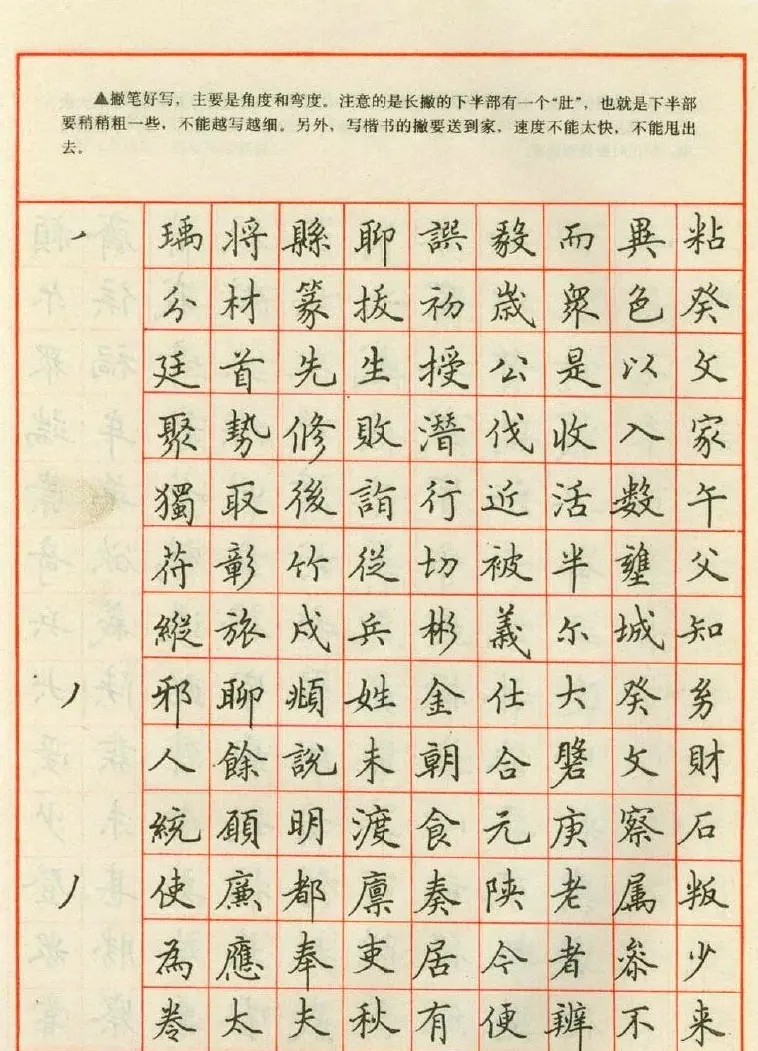 ▲撇笔好写，主要是角度和弯度。注意的是长撇的下半部有一个“肚”，也就是下半部
要稍稍粗一些，不能越写越细。另外，写楷书的撇要送到家，速度不能太快，不能甩出
去。
瑀将縣聊誤毅而異粘
分材篆拔初歲眾色癸
廷首先生授公是以文
聚勢修敗潛伐收入家
獨取後詣行近活数午
苻彰竹從切被半壅父
縱旅戍兵彬義尔城知
邪聊頫姓金仕大癸
人餘説未朝合文財
統願明渡食元庚察石
使廉都廪奏陕老属叛
為應奉吏居令者叅少
卷太夫秋有便辨不来